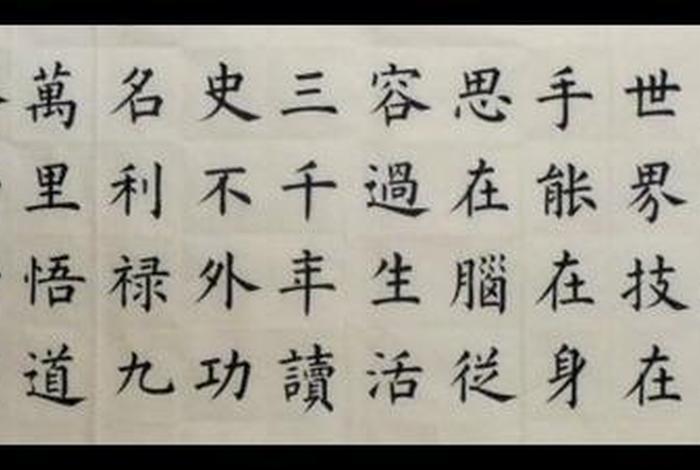 世界技在
手能在身
思在腦從
容過生活
三千年讀
史不外功
名利禄九
萬里悟道